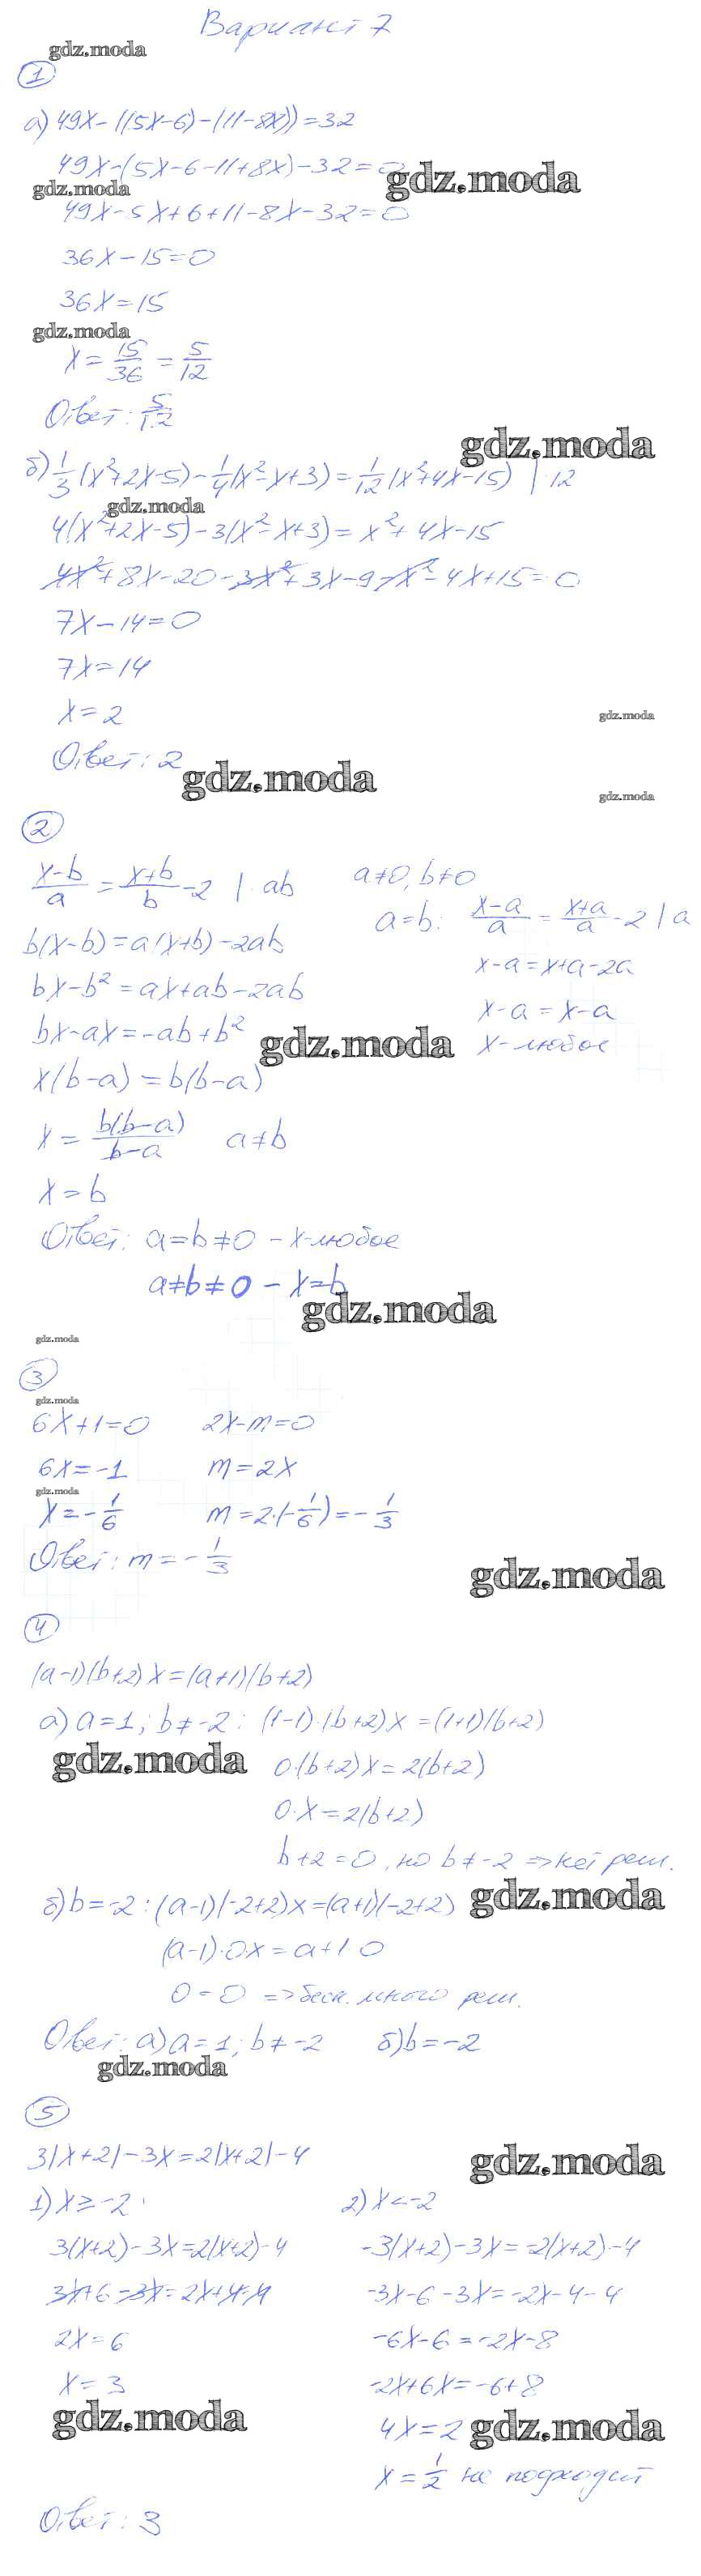 Вариант 7
gdz.moda
1
а) 49x-((5x-6)-(11-8x))=32
49x-(5x-6-11+8x)-32=0
gdz.moda
gdz.moda
49x-5x+6+11-8x-32=0
36x-15=0
36x=15
gdz.moda
x=15/36=5/12
Ответ: 5/12
gdz.moda
б) 1/3(x²+2x-5)-1/4(x²-x+3)=1/12(x²+4x-15) |·12
gdz.moda
4(x²+2x-5)-3(x²-x+3)=x²+4x-15
4x²+8x-20-3x²+3x-9-x²-4x+15=0
7x-14=0
7x=14
x=2
gdz.moda
Ответ: 2
gdz.moda
gdz.moda
2
(x-b)/a=(x+b)/b-2 |·ab
a≠0, b≠0
b(x-b)=a(x+b)-2ab
bx-b²=ax+ab-2ab
bx-ax=-ab+b²
gdz.moda
x(b-a)=b(b-a)
x=b(b-a)/(b-a) a≠b
x=b
a=b: (x-a)/a=(x+a)/a-2 |·a
x-a=x+a-2a
x-a=x-a
x-любое
Ответ: a=b≠0 - x-любое
a≠b≠0 - x=b
gdz.moda
gdz.moda
3
gdz.moda
6x+1=0 2x-m=0
6x=-1 m=2x
gdz.moda
x=-1/6 m=2·(-1/6)=-1/3
Ответ: m=-1/3
gdz.moda
4
(a-1)(b+2)x=(a+1)(b+2)
а) a=1; b≠-2: (1-1)·(b+2)x=(1+1)(b+2)
gdz.moda
0·(b+2)x=2(b+2)
0·x=2(b+2)
b+2=0, но b≠-2 => нет реш.
б) b=-2: (a-1)(-2+2)x=(a+1)(-2+2)
gdz.moda
(a-1)·0x=a+1·0
0=0 => беск. много реш.
Ответ: а) a=1; b≠-2 б) b=-2
gdz.moda
5
3|x+2|-3x=2|x+2|-4
gdz.moda
1) x≥-2
3(x+2)-3x=2(x+2)-4
3x+6-3x=2x+4-4
2x=6
x=3
gdz.moda
2) x<-2
-3(x+2)-3x=-2(x+2)-4
-3x-6-3x=-2x-4-4
-6x-6=-2x-8
-2x+6x=-6+8
4x=2
gdz.moda
x=1/2 не подходит
Ответ: 3